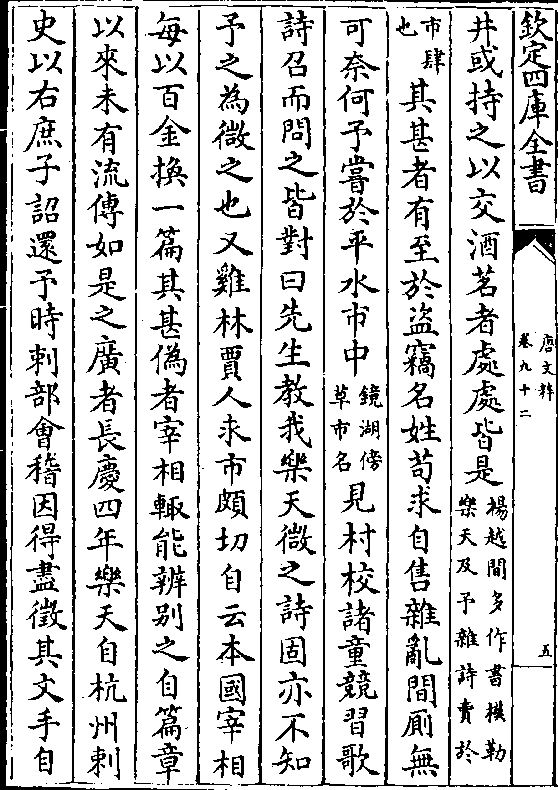 欽定四庫全書
唐文粹
卷九十二
五
井或持之以交酒茗者處處皆是楊越間多作書模勒樂天及予雜詩賣於
市肆也其甚者有至於盗竊名姓苟求自售雜亂間厠無
可奈何予嘗於平水市中鏡湖傍草市名見村校諸童競習歌
詩召而問之皆對曰先生教我樂天微之詩固亦不知
予之為微之也又雞林賈人求市頗切自云本國宰相
每以百金換一篇其甚偽者宰相輒能辨别之自篇章
以來未有流傳如是之廣者長慶四年樂天自杭州刺
史以右庶子詔還予時刺部會稽因得盡徵其文手自